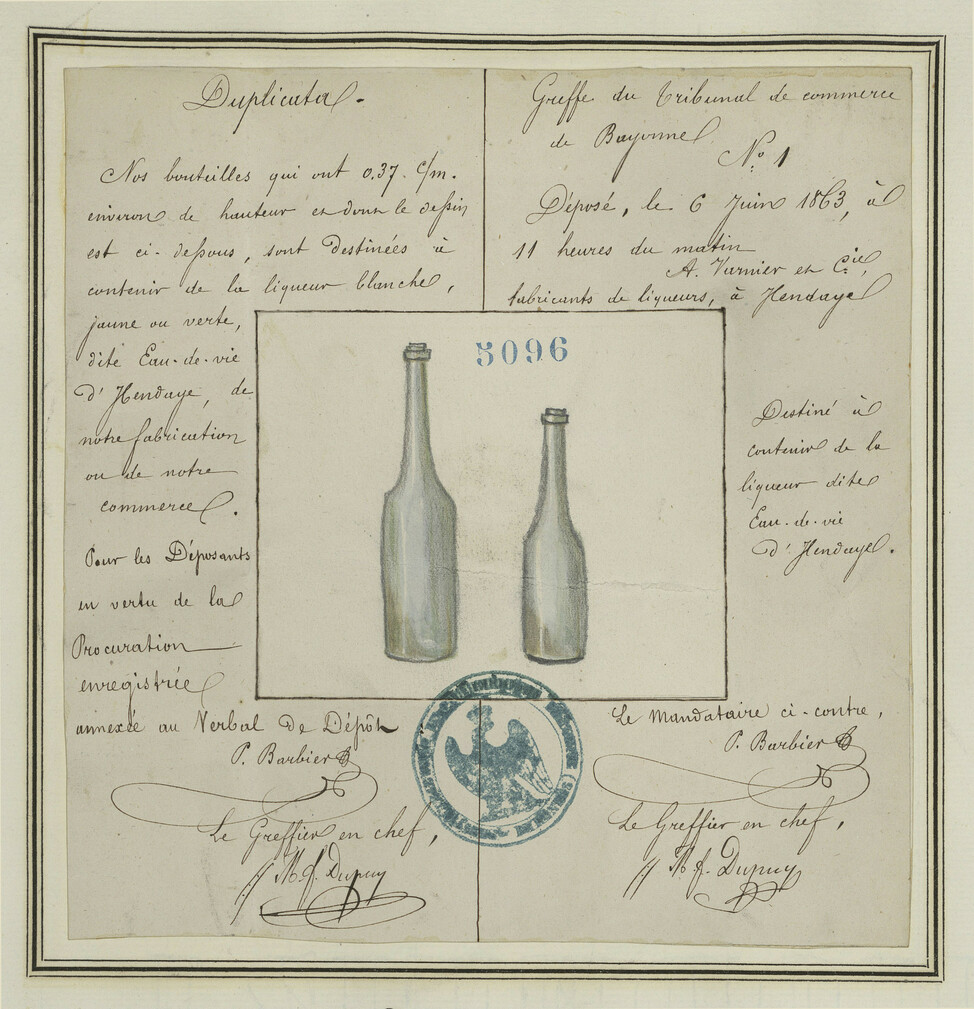 Duplicata.
Nos bouteilles qui ont 0.37. c/m.
environ de hauteur et dont le dessin
est ci-dessous, sont destinées à
contenir de la liqueur blanche,
jaune ou verte,
dite Eau-de-vie
d'Hendaye, de
notre fabrication
ou de notre
commerce.
Pour les Déposants
en vertu de la
Procuration
enregistrée
annexée au Verbal de Dépôt
P. Barbier
Le Greffier en chef,
Dupuy
Greffe du Tribunal de commerce
de Bayonne
No. 1
Déposé, le 6 Juin 1863, à
11 heures du matin
A. Varnier et Cie,
fabricants de liqueurs, à Hendaye
5096
Destiné à
contenir de la
liqueur dite
Eau-de-vie
d'Hendaye.
Le Mandataire ci-contre,
P. Barbier
Le Greffier en chef,
Dupuy